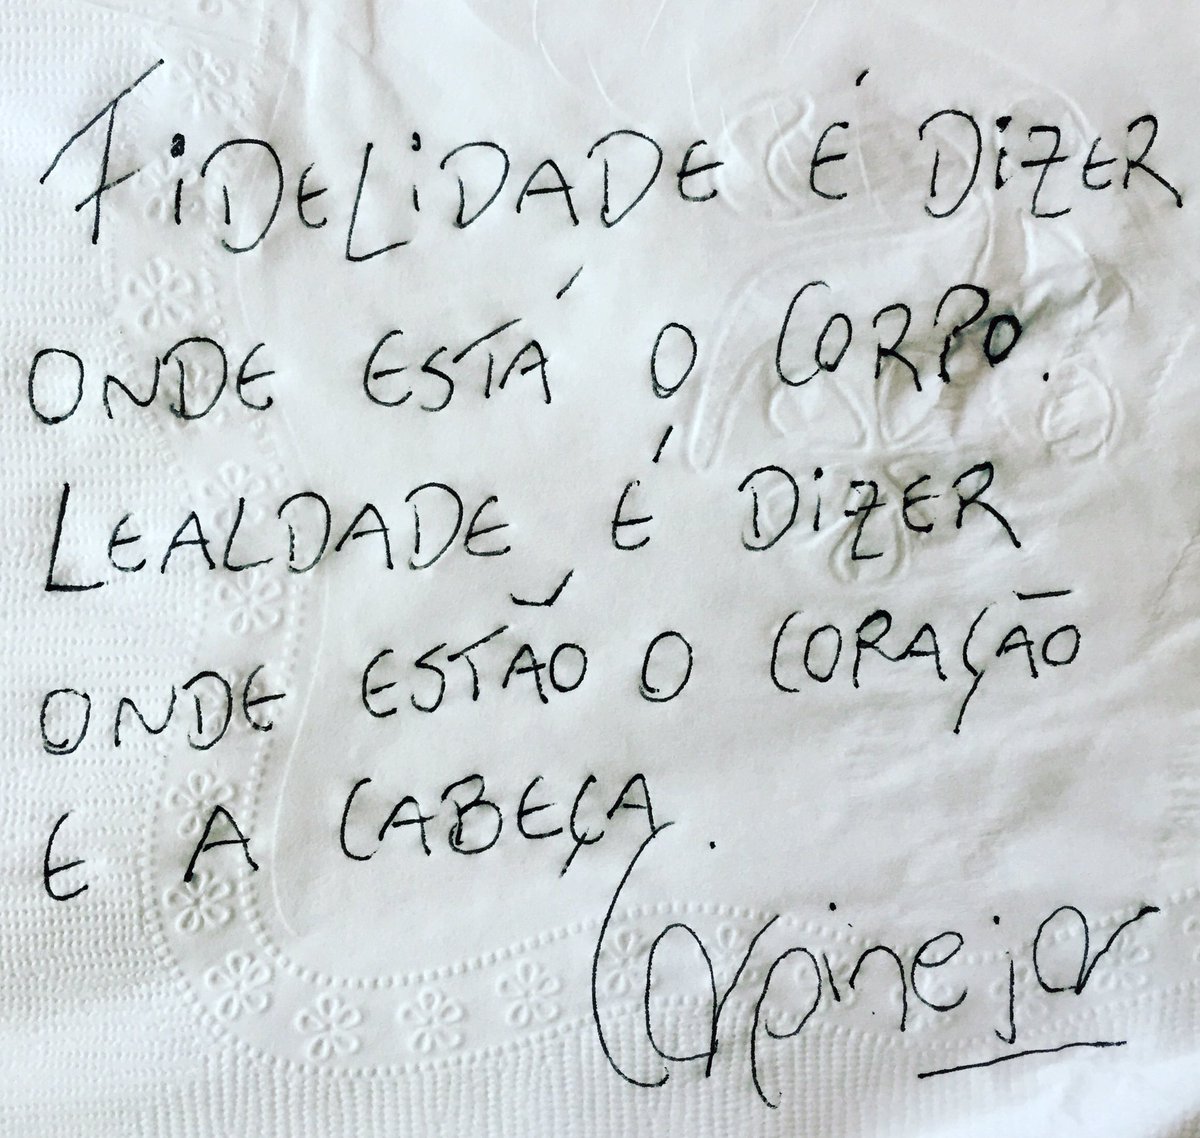 FiDELiDADE É DiZER
ONDE ESTÁ O CORPO.
LEALDADE É DiZER
ONDE ESTÃO O CORAÇÃO
E A CABEÇA.
Carpinejar